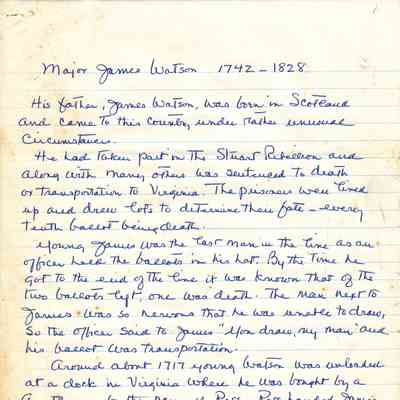 Major James Watson 1742 - 1828
His father, James Watson, was born in Scotland
and came to this country under rather unusual
Circumstances.
He had taken part in the Stuart Rebellion and
along with many others was sentenced to death
or transportation to Virginia. The prisoners were lined
up and drew lots to determine their fate - every
tenth ballot being death.
Young James was the last man in the line as an
officer held the ballots in his hat. By the time he
got to the end of the line it was known that of the
two ballots left, one was death. The man next to
James was so nervous that he was unable to draw,
So the officer said to James "You draw, my man" and
his ballot was transportation.
Around about 1717 young Watson was unloaded
at a dock in Virginia where he was bought by a